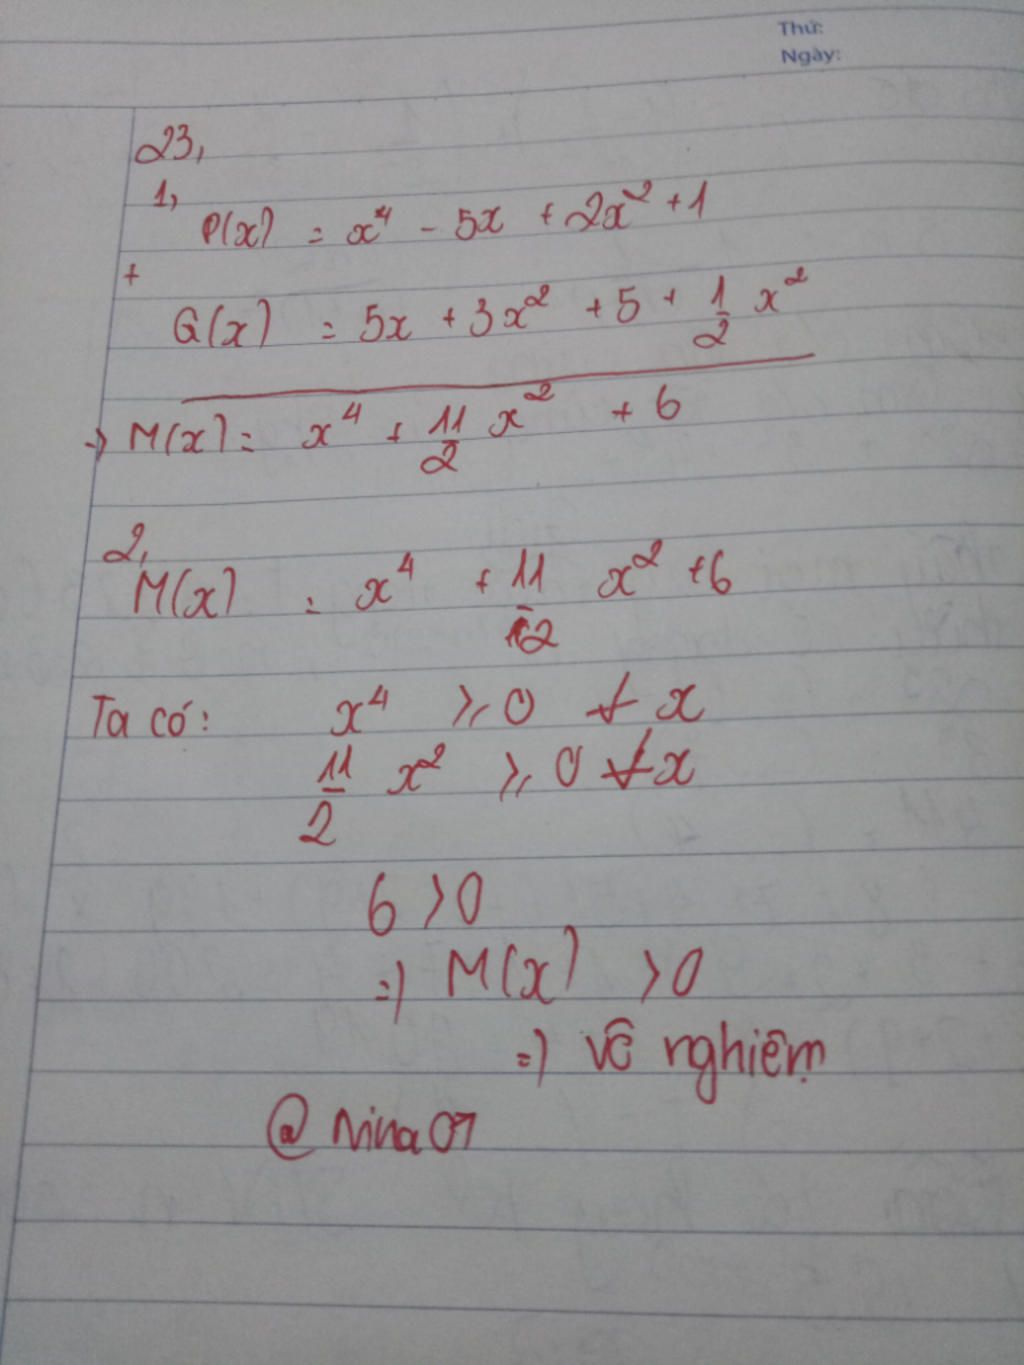 Thứ:
Ngày:
23,
1,
P(x) = x⁴ - 5x + 2x² + 1
+
G(x) = 5x + 3x² + 5 + 1/2 x²
→ M(x) = x⁴ + 11/2 x² + 6
2,
M(x) = x⁴ + 11/2 x² + 6
Ta có: x⁴ ≥ 0 ∀ x
11/2 x² ≥ 0 ∀ x
6 > 0
=) M(x) > 0
=) Vô nghiệm
@ Nina07